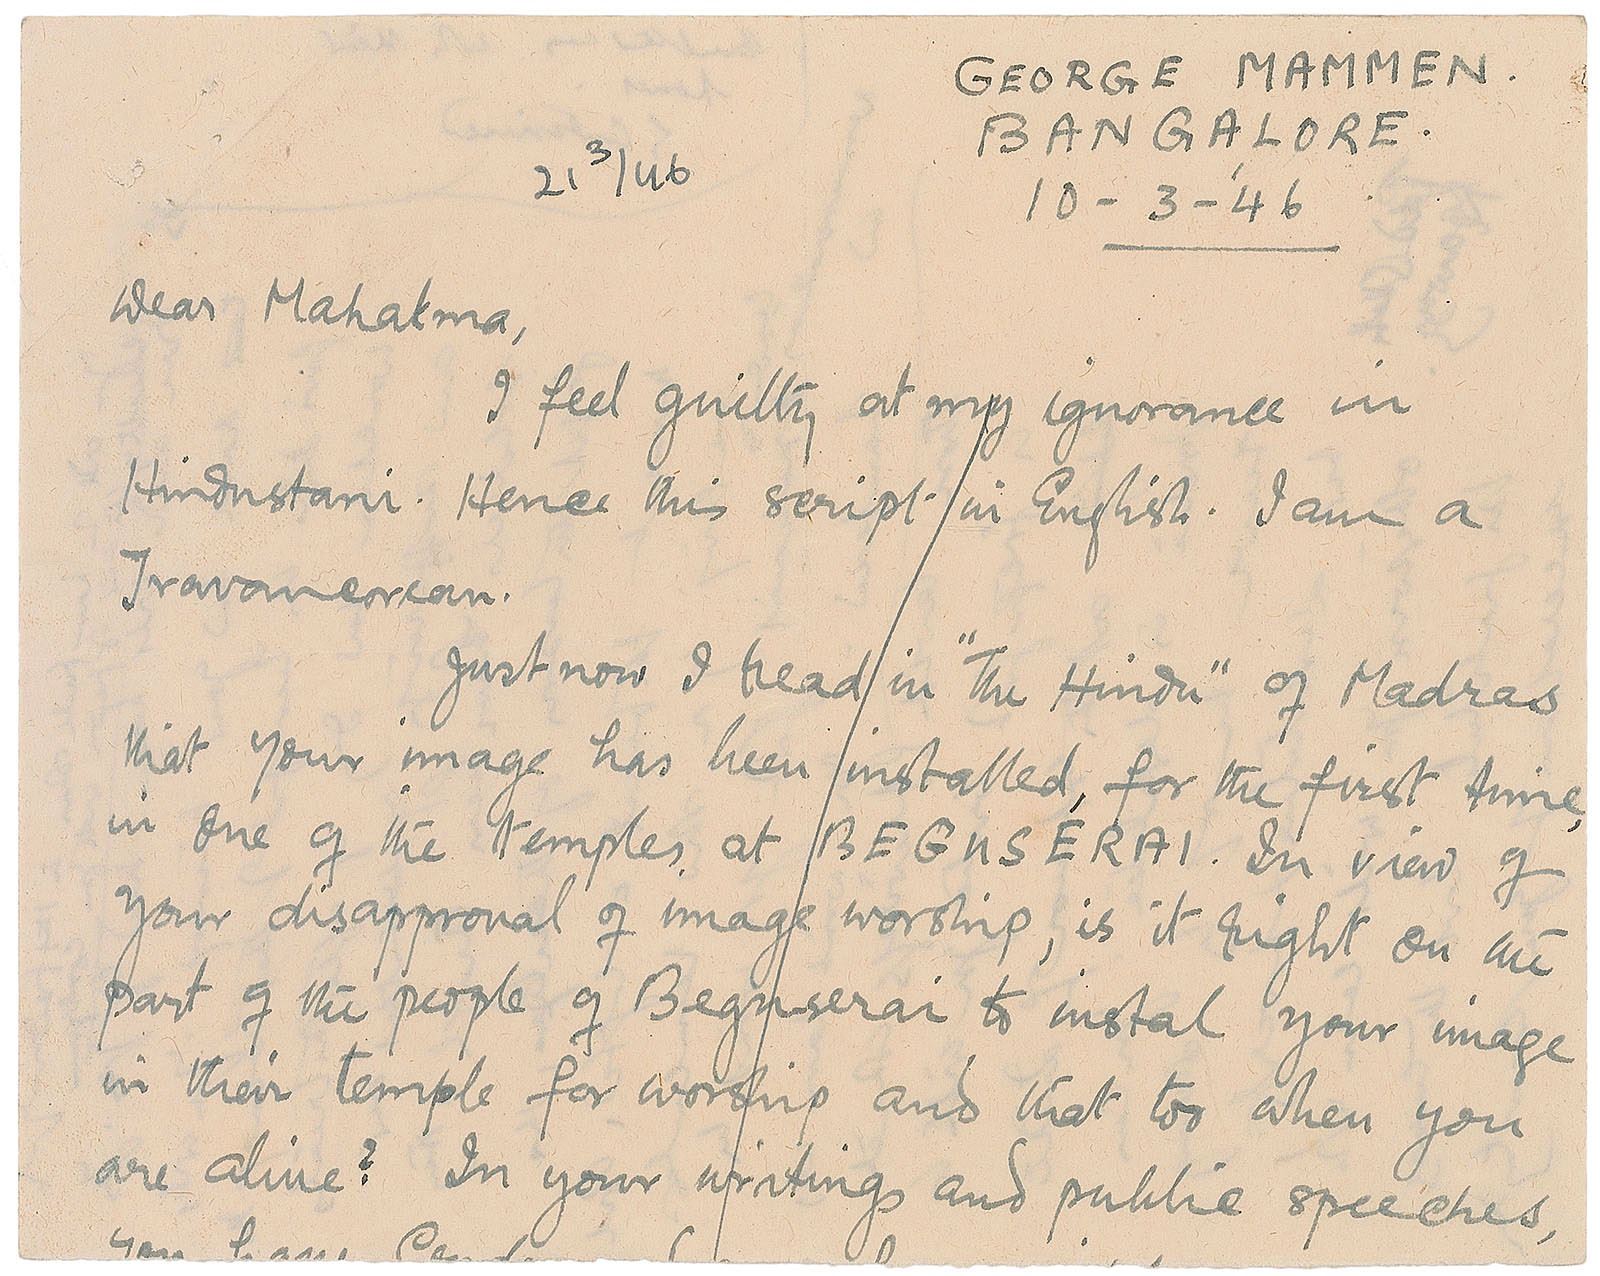 GEORGE MAMMEN.
BANGALORE.
21 3/46
10-3-46
Dear Mahatma,
I feel guilty at my ignorance in
Hindustani. Hence this script in English. I am a
Travancorean.
Just now I read in "The Hindu" of Madras
that your image has been installed, for the first time,
in one of the temples, at BEGUSERAI. In view of
your disapproval of image worship, is it right on the
part of the people of Beguserai to instal your image
in their temple for worship and that too when you
are alive? In your writings and public speeches,
you have